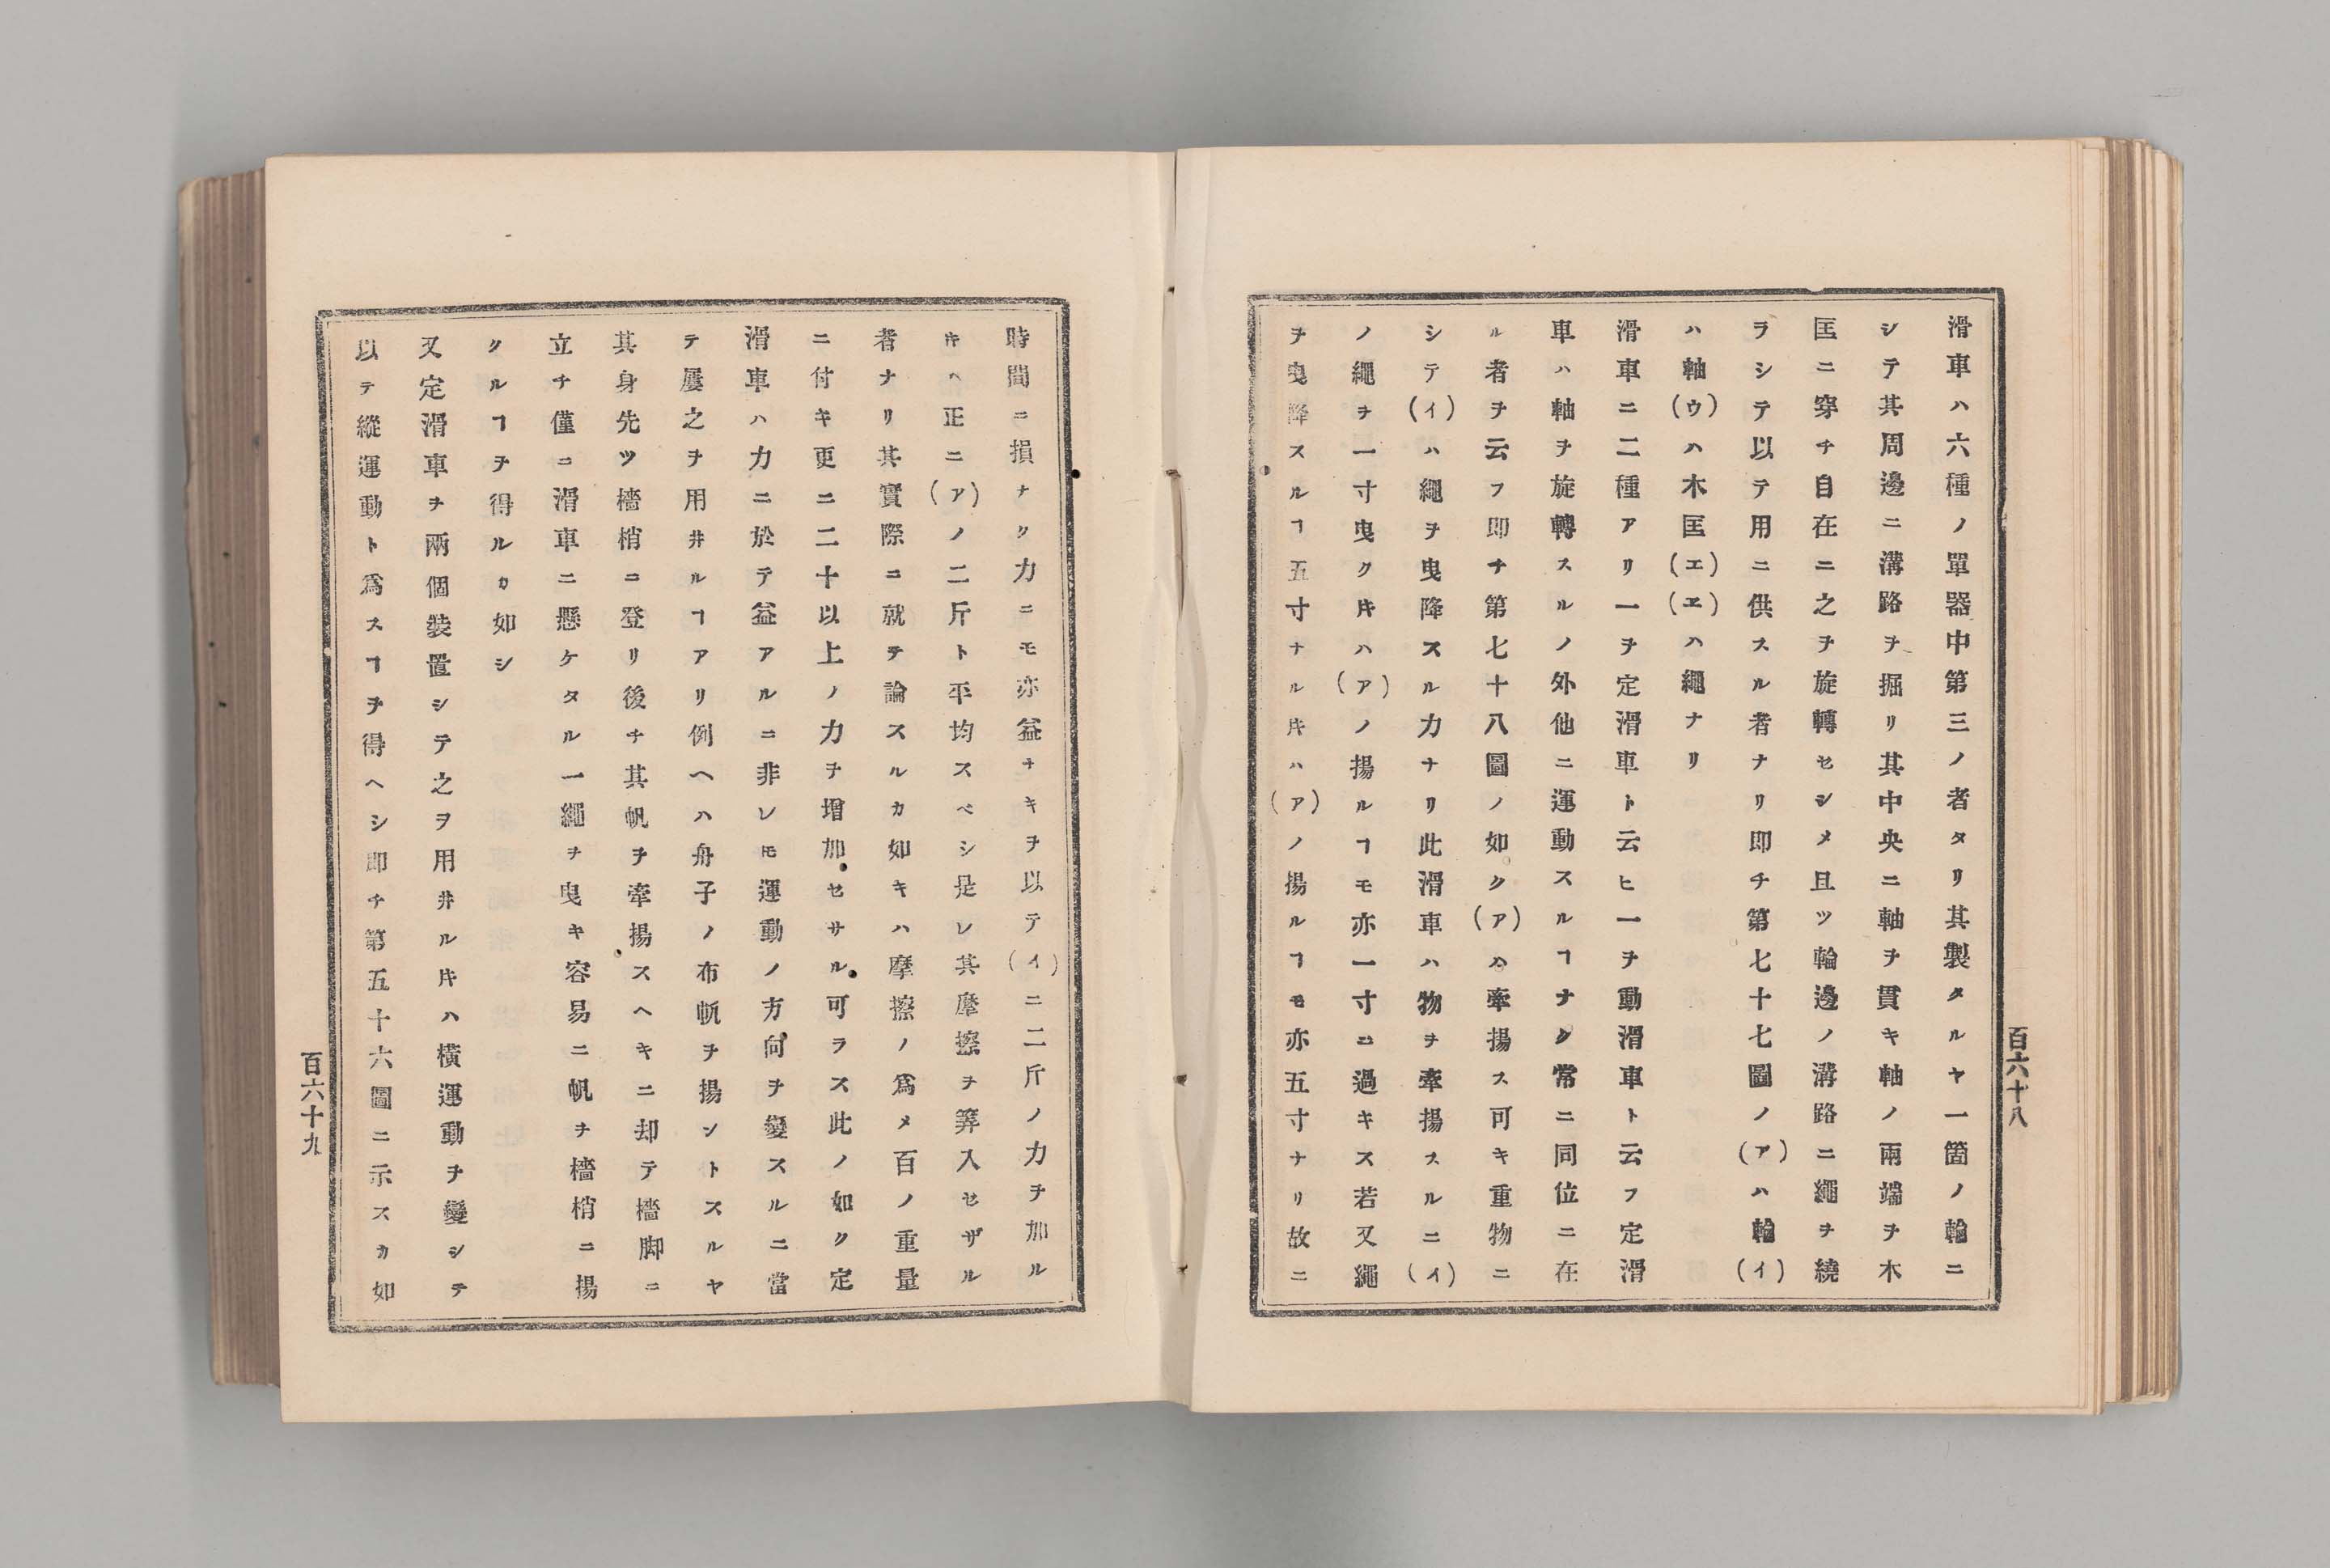 滑車ハ六種ノ單器中第三ノ者タリ其製タルヤ一箇ノ輪ニ
シテ其周邊ニ溝路ヲ掘リ其中央ニ軸ヲ貫キ軸ノ兩端ヲ木
匡ニ穿チ自在ニ之ヲ旋轉セシメ且ツ輪邊ノ溝路ニ繩ヲ繞
ラシテ以テ用ニ供スル者ナリ即チ第七十七圖ノ(ア)ハ輪(イ)
ハ軸(ウ)ハ木匡(エ)(エ)ハ繩ナリ
滑車ニ二種アリ一ヲ定滑車ト云ヒ一ヲ動滑車ト云フ定滑
車ハ軸ヲ旋轉スルノ外他ニ運動スルヿナク常ニ同位ニ在
ル者ヲ云フ即チ第七十八圖ノ如ク(ア)ハ牽揚ス可キ重物ニ
シテ(イ)ハ繩ヲ曳降スル力ナリ此滑車ハ物ヲ牽揚スルニ(イ)
ノ繩ヲ一寸曳ク𪜈ハ(ア)ノ揚ルヿモ亦一寸ニ過キス若又繩
ヲ曳降スルヿ五寸ナル𪜈ハ(ア)ノ揚ルヿモ亦五寸ナリ故ニ
百六十八
時間ニ損ナク力ニモ亦益ナキヲ以テ(イ)ニ二斤ノ力ヲ加ル
𪜈ハ正ニ(ア)ノ二斤ト平均スベシ是レ其摩擦ヲ筭入セザル
者ナリ其實際ニ就テ論スルカ如キハ摩擦ノ爲メ百ノ重量
ニ付キ更ニ二十以上ノ力ヲ增加セサル可ラス此ノ如ク定
滑車ハ力ニ於テ益アルニ非レ𪜈運動ノ方向ヲ變スルニ當
テ屢之ヲ用井ルヿアリ例ヘハ舟子ノ布帆ヲ揚ントスルヤ
其身先ツ檣梢ニ登リ後チ其帆ヲ牽揚スヘキニ却テ檣脚ニ
立チ僅ニ滑車ニ懸ケタル一繩ヲ曳キ容易ニ帆ヲ檣梢ニ揚
クルヿヲ得ルカ如シ
又定滑車ヲ兩個裝置シテ之ヲ用井ル𪜈ハ橫運動ヲ變シテ
以テ縱運動ト爲スヿヲ得ヘシ即チ第五十六圖ニ示スカ如
百六十九